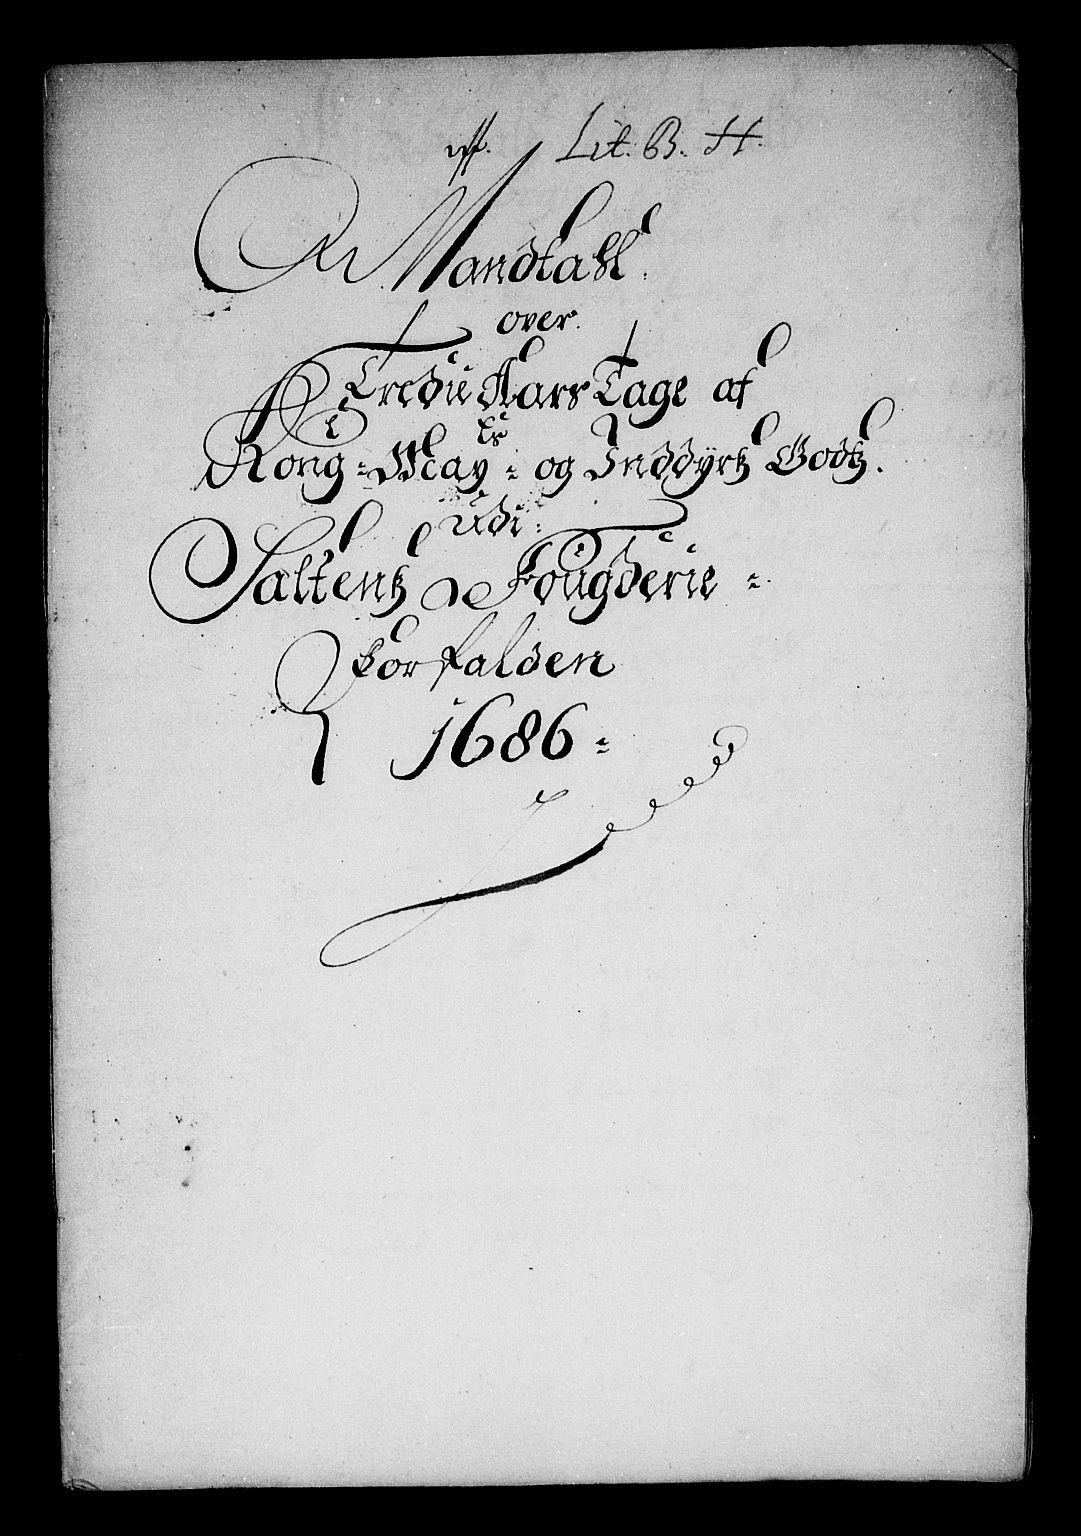 Lit. B. H.
Mandtahl
over
Tredie Aars Tage af
Kong= May^ts= og Inddyrtz Godtz.
Udi:
Saltentz Fougderie =
Forfalden
1686=